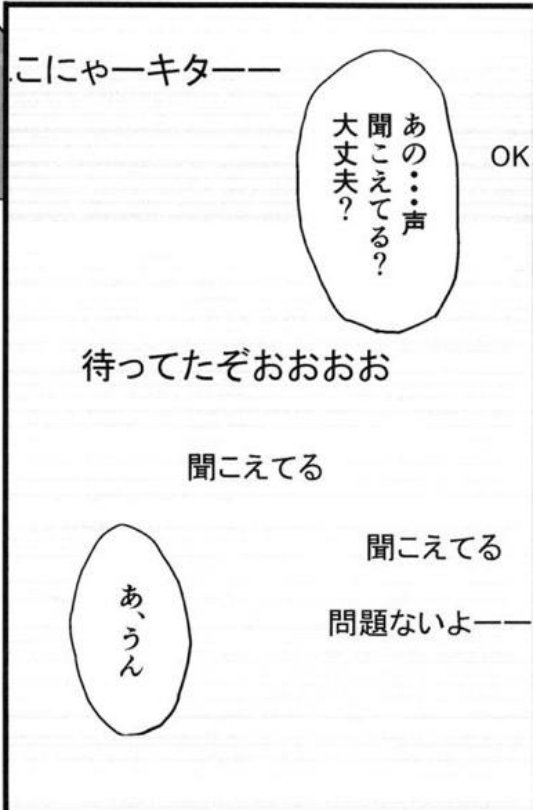 .こにゃーキターー
あの・・・声
聞こえてる?
大丈夫?
OK
待ってたぞおおおお
聞こえてる
聞こえてる
問題ないよーー
あ、うん